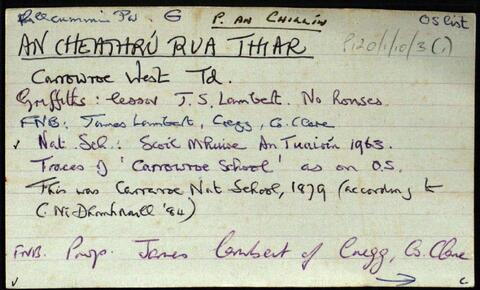 Killcummin Ph. G P. AN CHILLÍN OS list
AN CHEATHRÚ RUA THIAR P120/1/10/3(1)
Carrowroe West Td.
Griffiths: lessor J.S. Lambert. No houses.
FNB: James Lambert, Cregg, Co. Clare
✓ Nat. Sch.: Scoil Mhuire An Tuairín 1963.
Traces of 'Carrowroe School' as on O.S.
This was Carraroe Nat School, 1879 (according to
C. Ní Dhomhnaill '84)
FNB. Prop. James Lambert of Cregg, Co. Clare
✓ → c.